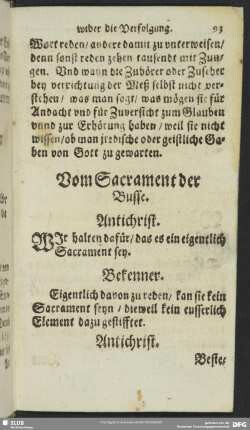 wider die Verfolgung. 93
Wort reden / andere damit zu vnterweisen /
denn sonst reden zehen tausendt mit Zun-
gen. Vnd wann die Zuhörer oder Zuseher
bey verrichtung der Meß selbst nicht ver-
stehen / was man sagt / was mögen sie für
Andacht vnd für Zuversicht zum Glauben
vnnd zur Erhörung haben / weil sie nicht
wissen / ob man irrdische oder geistliche Ga-
ben von Gott zu gewarten.
Vom Sacrament der
Busse.
Antichrist.
WIr halten dafür / das es ein eigentlich
Sacrament sey.
Bekenner.
Eigentlich davon zu reden / kan sie kein
Sacrament seyn / dieweil kein eusserlich
Element dazu gestifftet.
Antichrist.
Beste-
SLUB
DFG